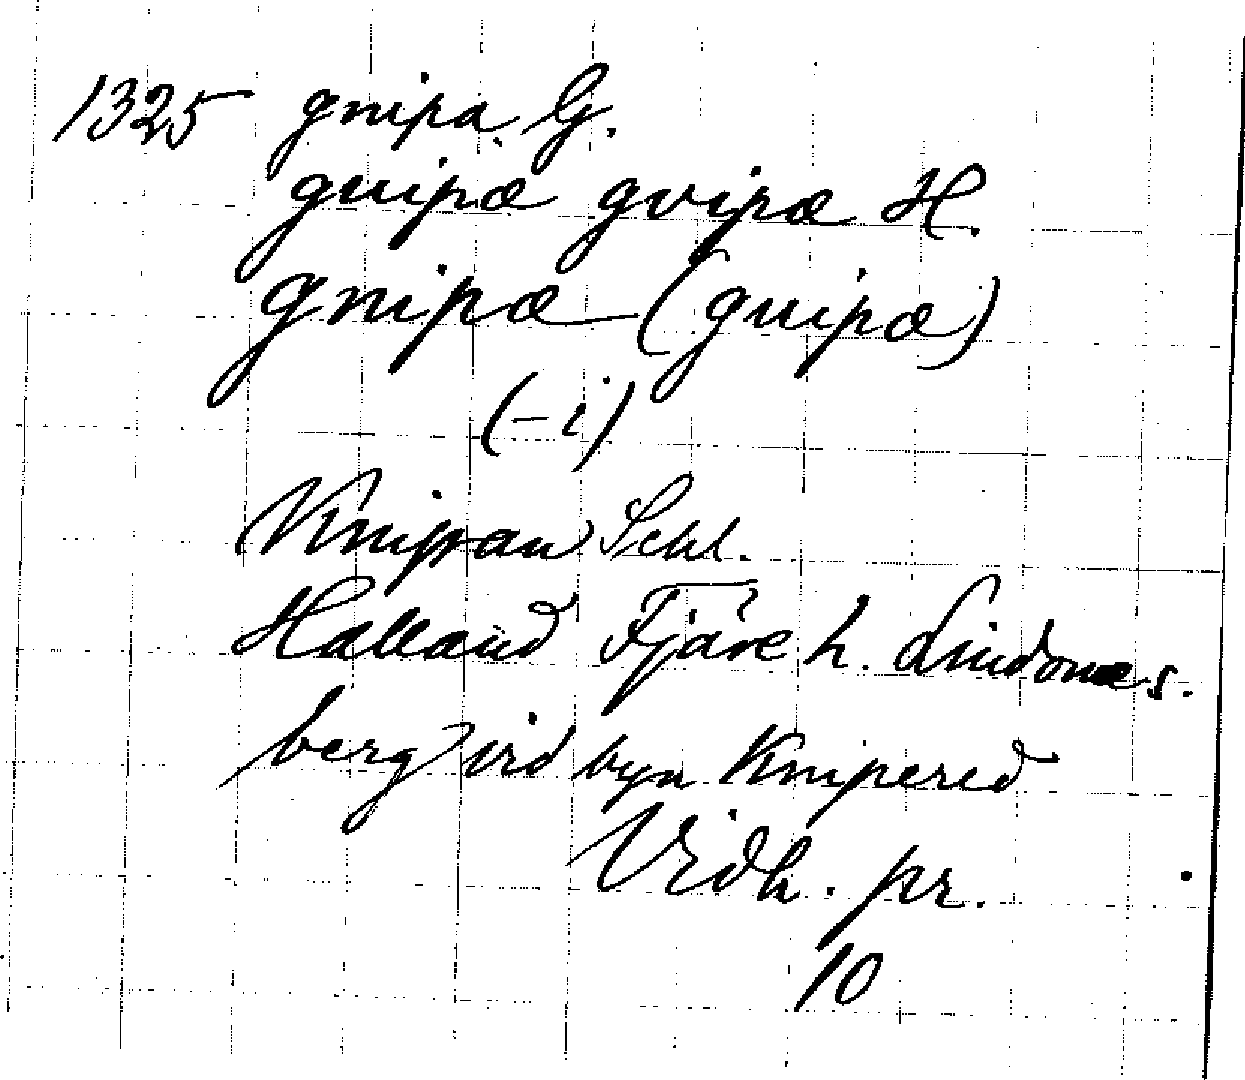 1325 gnipa G.
guipæ gvipæ H.
gnipæ (guipæ)
(-i)
Knippan Schl.
Halland Fjäre h. Lindomes.
berg vid byn Knipered
Vidh. pr.
10